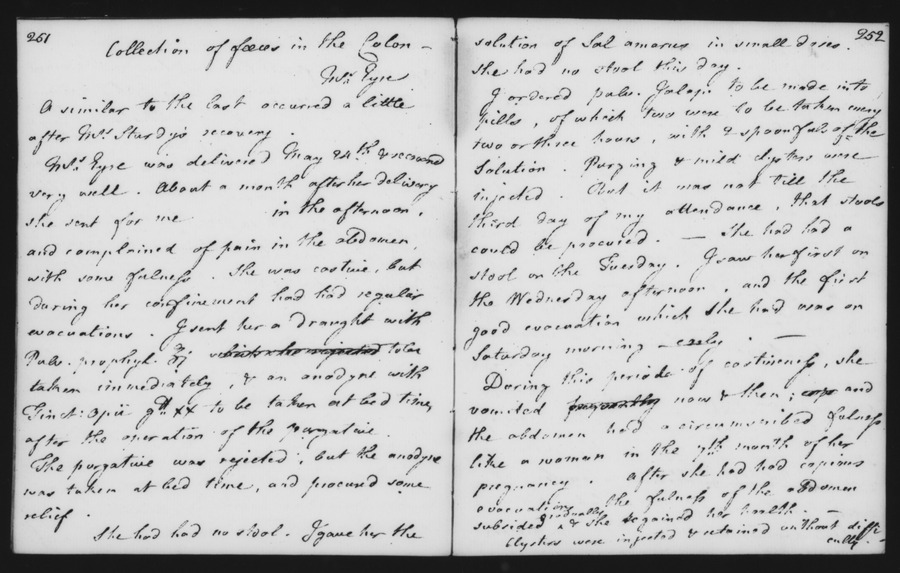 251
Collection of fæces in the Colon -
Mrs. Eyre
A similar to the last occurred a little
after Mrs. Sturdy's recovery.
Mrs. Eyre was delivered May 24th & recovered
very well. About a month after her delivery
she sent for me in the afternoon,
and complained of pain in the abdomen,
with some fulness. She was costive, but
during her confinement had had regular
evacuations. I sent her a draught with
Pulv. prophyl. which she rejected to be
taken immediately, & an anodyne with
Tinct: Opii gtt xx to be taken at bed time,
after the operation of the purgative.
The purgative was rejected, but the anodyne
was taken at bed time, and procured some
relief.
She had had no stool. I gave her the
252
solution of Sal amarus in small doses.
She had no stool this day.
I ordered pulv. Jalapi to be made into
pills, of which two were to be taken every
two or three hours, with 2 spoonfuls of the
Solution. Purging & mild clysters were
injected. But it was not till the
third day of my attendance, that stools
could be procured. — She had had a
stool on the Tuesday. I saw her first on
the Wednesday afternoon, and the first
good evacuation which she had was on
Saturday morning - early. —
During this periode of costiveness, she
vomited frequently now & then; and
the abdomen had a circumscribed fulness
like a woman in the 7th month of her
pregnancy. After she had had copious
evacuations the fulness of the abdomen
subsided gradually & she regained her health. —
Clysters were injected & retained without diffi
culty. -